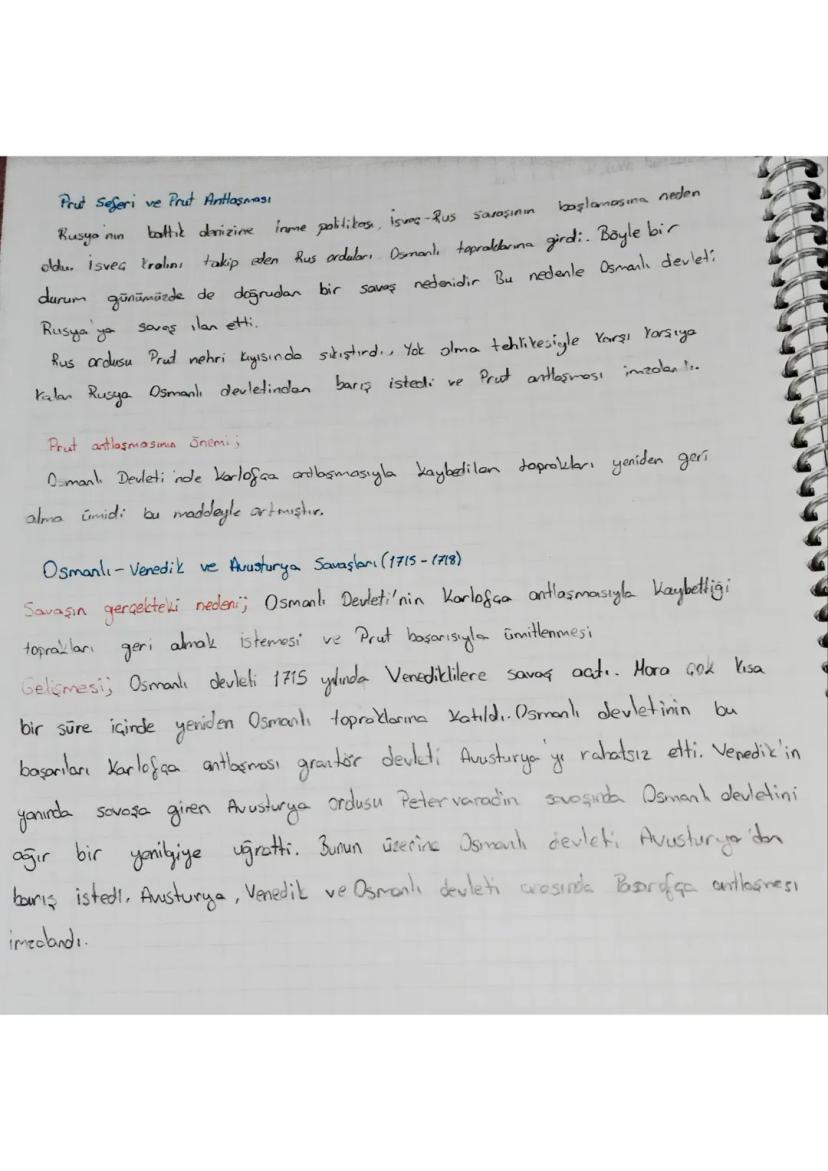 Prut Seferi ve Prut Antlaşması
Rusya'nın baltık denizine inme politikası, isveç-Rus savaşının başlamasına neden
oldu. isveç kralını takip eden Rus orduları Osmanlı topraklarına girdi. Böyle bir
durum günümüzde de doğrudan bir savaş nedenidir Bu nedenle Osmanlı devleti
Rusya'ya savaş ilan etti.
Rus ordusu Prut nehri kıyısında sıkıştırdı., Yok olma tehlikesiyle karşı karşıya
kalan Rusya Osmanlı devletinden barış istedi ve Prut antlaşması imzalandı.
Prut antlaşmasının önemi;
Osmanlı Devleti'nde Karlofça antlaşmasıyla kaybedilen toprakları yeniden geri
alma ümidi bu maddeyle artmıştır.
Osmanlı-Venedik ve Avusturya Savaşları (1715-1718)
Savaşın gerçekteki nedeni; Osmanlı Devleti'nin Karlofça antlaşmasıyla kaybettiği
toprakları geri almak istemesi ve Prut başarısıyla ümitlenmesi
Gelişmesi; Osmanlı devleti 1715 yılında Venediklilere savaş açtı. Mora çok kısa
bir süre içinde yeniden Osmanlı topraklarına katıldı. Osmanlı devletinin bu
başarıları Karlofça antlaşması grantör devleti Avusturya'yı rahatsız etti. Venedik'in
yanında savaşa giren Avusturya ordusu Petervaradin savaşında Osmanlı devletini
ağır bir yenilgiye uğrattı. Bunun üzerine Osmanlı devleti Avusturya'dan
barış istedi. Avusturya, Venedik ve Osmanlı devleti arasında Pasarofça antlaşması
imzalandı.